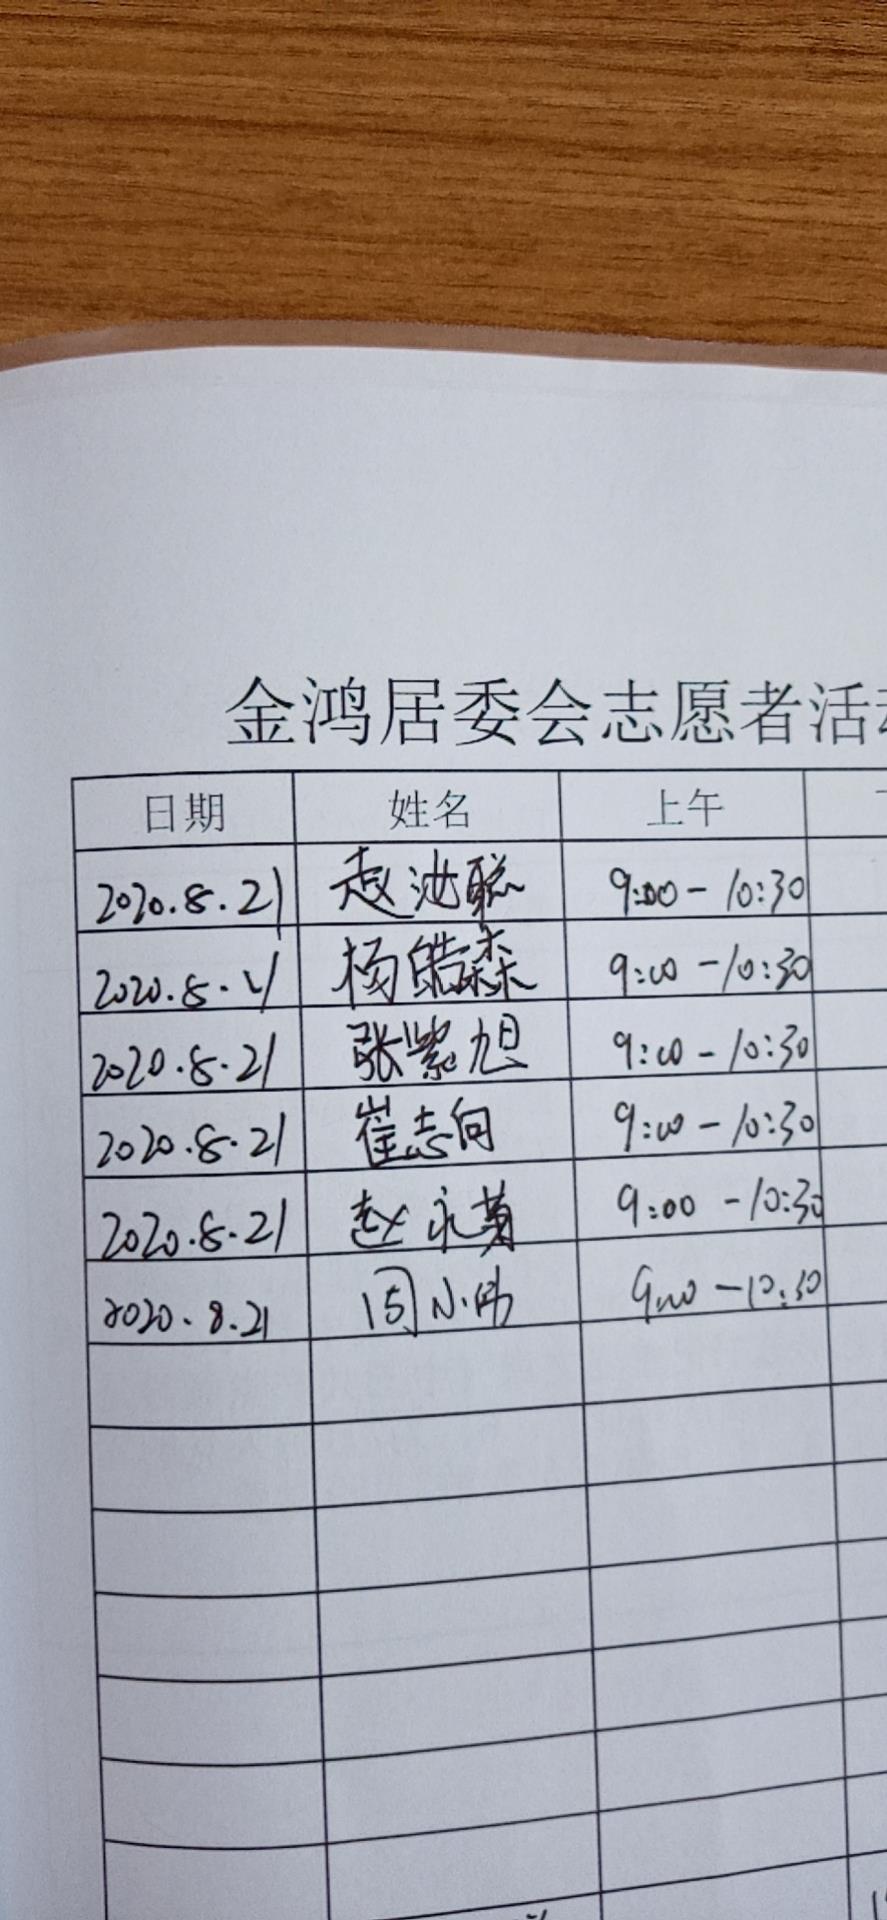 金鸿居委会志愿者活
日期 姓名 上午
2020.8.21 赵池聪 9:00-10:30
2020.8.21 杨皓森 9:00-10:30
2020.8.21 张紫旭 9:00-10:30
2020.8.21 崔志向 9:00-10:30
2020.8.21 赵永 9:00-10:30
2020.8.21 周小伟 9:00-10:30